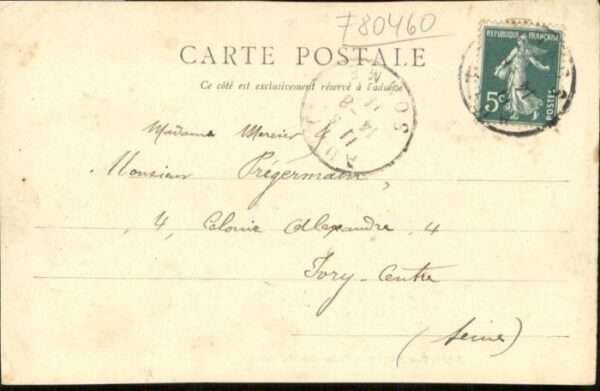 780460
CARTE POSTALE
Ce côté est exclusivement réservé à l'adresse
REPUBLIQUE FRANÇAISE
5c
POSTES
Madame Mercier &
Monsieur Prégermain,
4, Colonie Alexandre, 4
Ivry-Centre
(Seine)